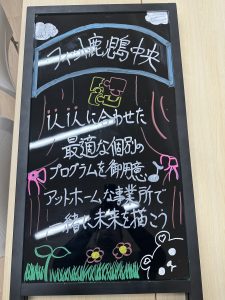 フィット鹿児島中央
1人1人に合わせた
最適な個別の
プログラムを御用意♪
アットホームな事業所で
一緒に未来を描こう